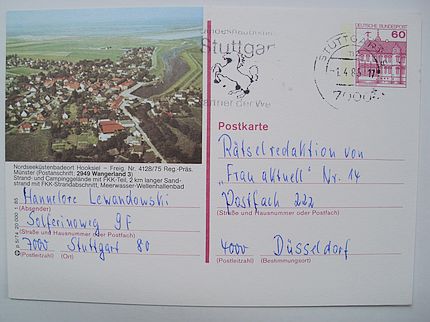 Landeshauptstadt
Stuttgart
Partner der We
STUTTGART
-1.4.86-17
7000
DEUTSCHE BUNDESPOST
60
Nordseeküstenbadeort Hooksiel – Freig. Nr. 4128/75 Reg.-Präs.
Münster (Postanschrift: 2949 Wangerland 3)
Strand- und Campinggelände mit FKK-Teil, 2 km langer Sand-
strand mit FKK-Strandabschnitt, Meerwasser-Wellenhallenbad
Hannelore Lewandowski
(Absender)
Solferinoweg 9F
(Straße und Hausnummer oder Postfach)
7000 Stuttgart 80
(Postleitzahl) (Ort)
Postkarte
Rätselredaktion von
"Frau aktuell" Nr. 14
Postfach 222
(Straße und Hausnummer oder Postfach)
4000 Düsseldorf
(Postleitzahl) (Bestimmungsort)